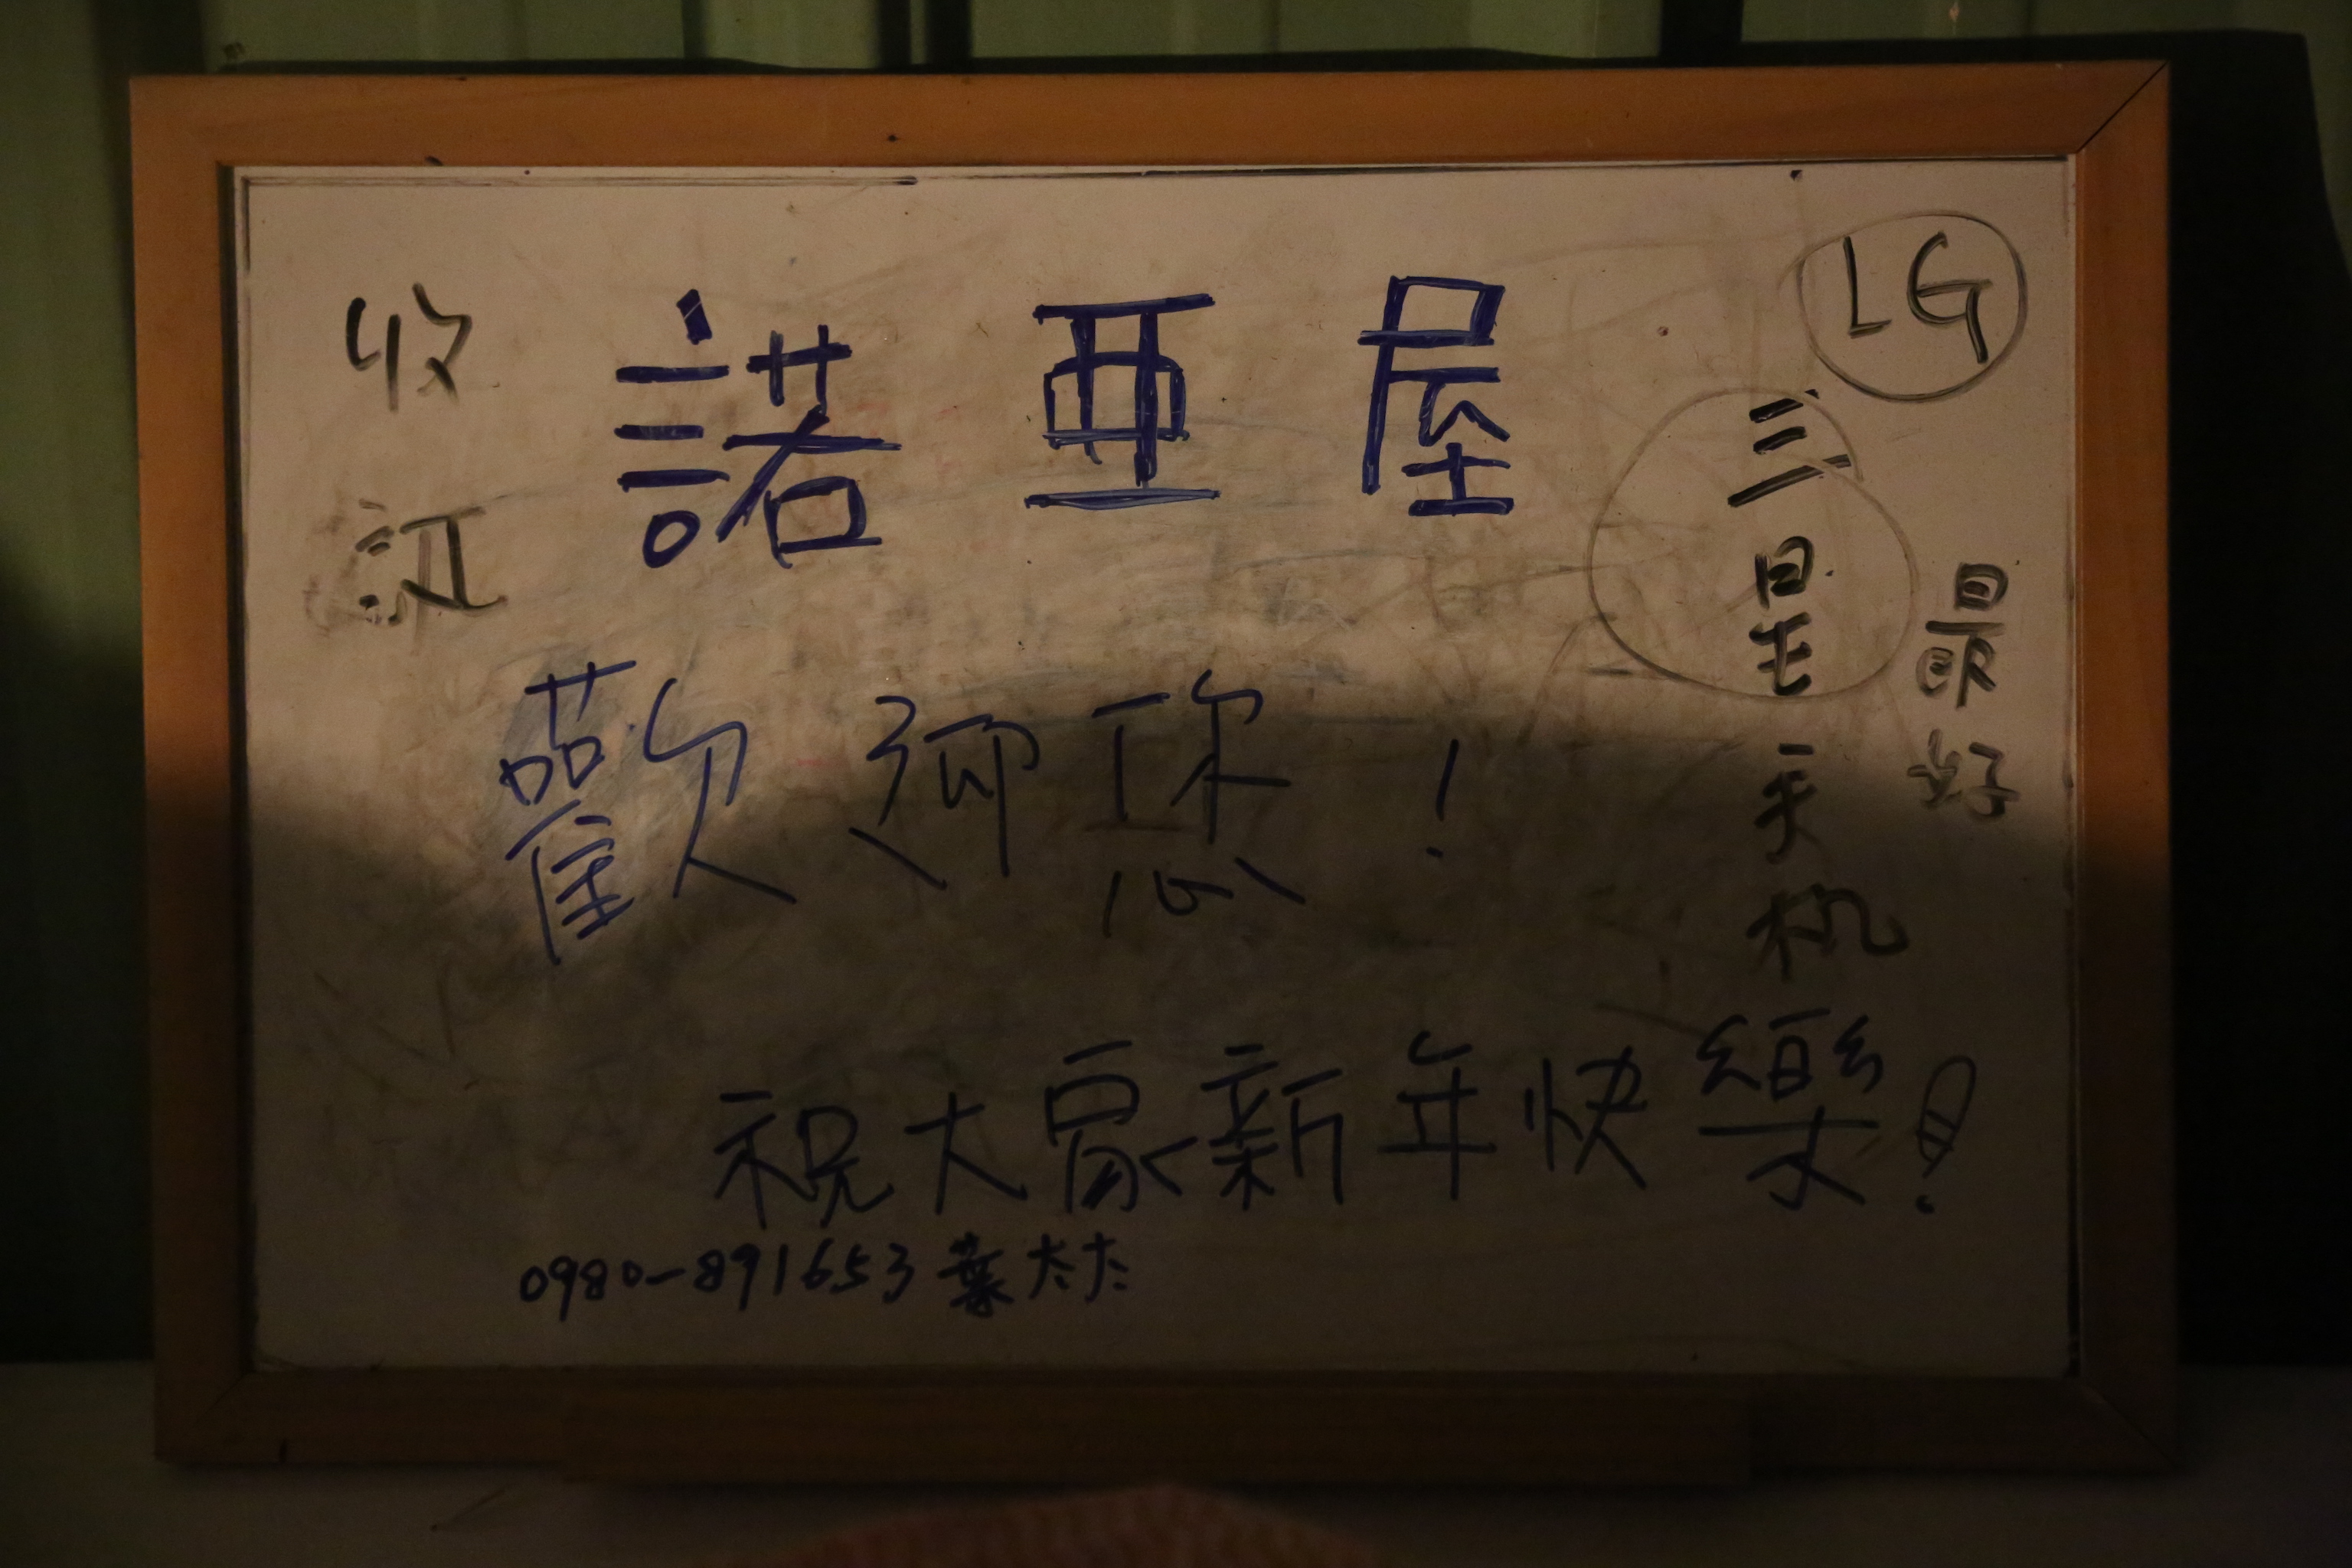 LG
諾亞屋
收証
三星手机
最好
歡迎您!
祝大家新年快樂!
0980-891653 葉太太